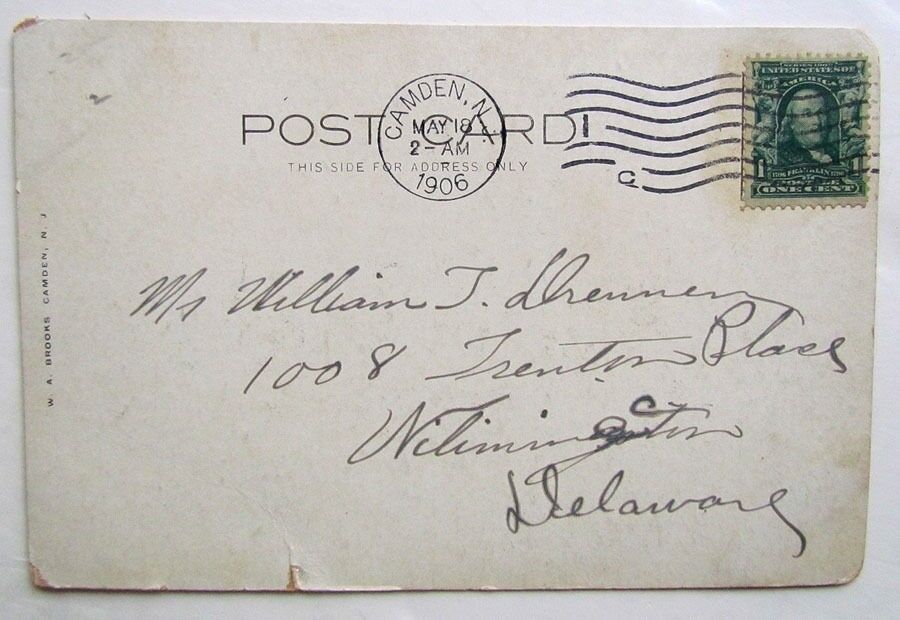 POST CARD
THIS SIDE FOR ADDRESS ONLY
CAMDEN, N.J.
MAY 18
2-AM
1906
C
SERIES 1902
UNITED STATES OF
AMERICA
1 1
FRANKLIN
ONE CENT
W. A. BROOKS CAMDEN, N. J
Mr William T. Drennen
1008 Trenton Place
Wilimington
Delaware